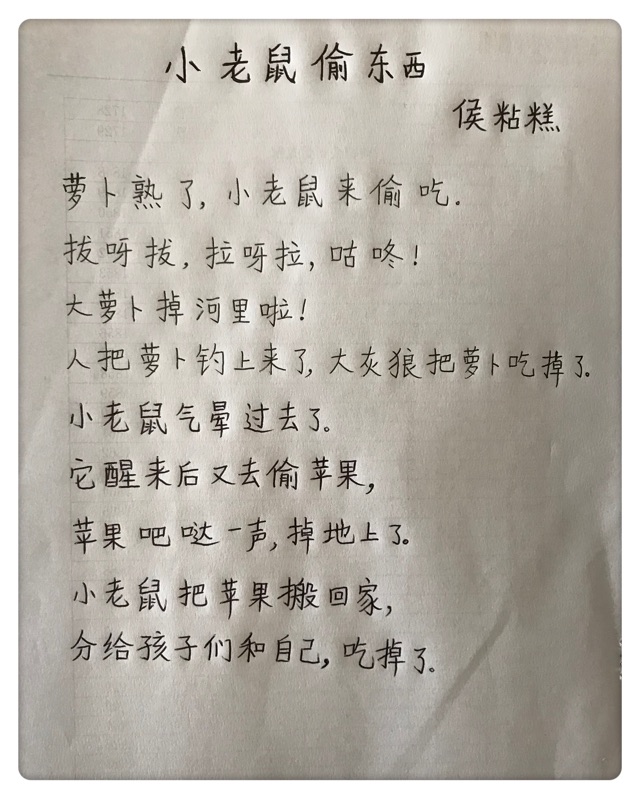 小老鼠偷东西
侯粘糕
萝卜熟了,小老鼠来偷吃.
拔呀拔,拉呀拉,咕咚!
大萝卜掉河里啦!
人把萝卜钓上来了,大灰狼把萝卜吃掉了.
小老鼠气晕过去了.
它醒来后又去偷苹果,
苹果吧哒一声,掉地上了.
小老鼠把苹果搬回家,
分给孩子们和自己,吃掉了.